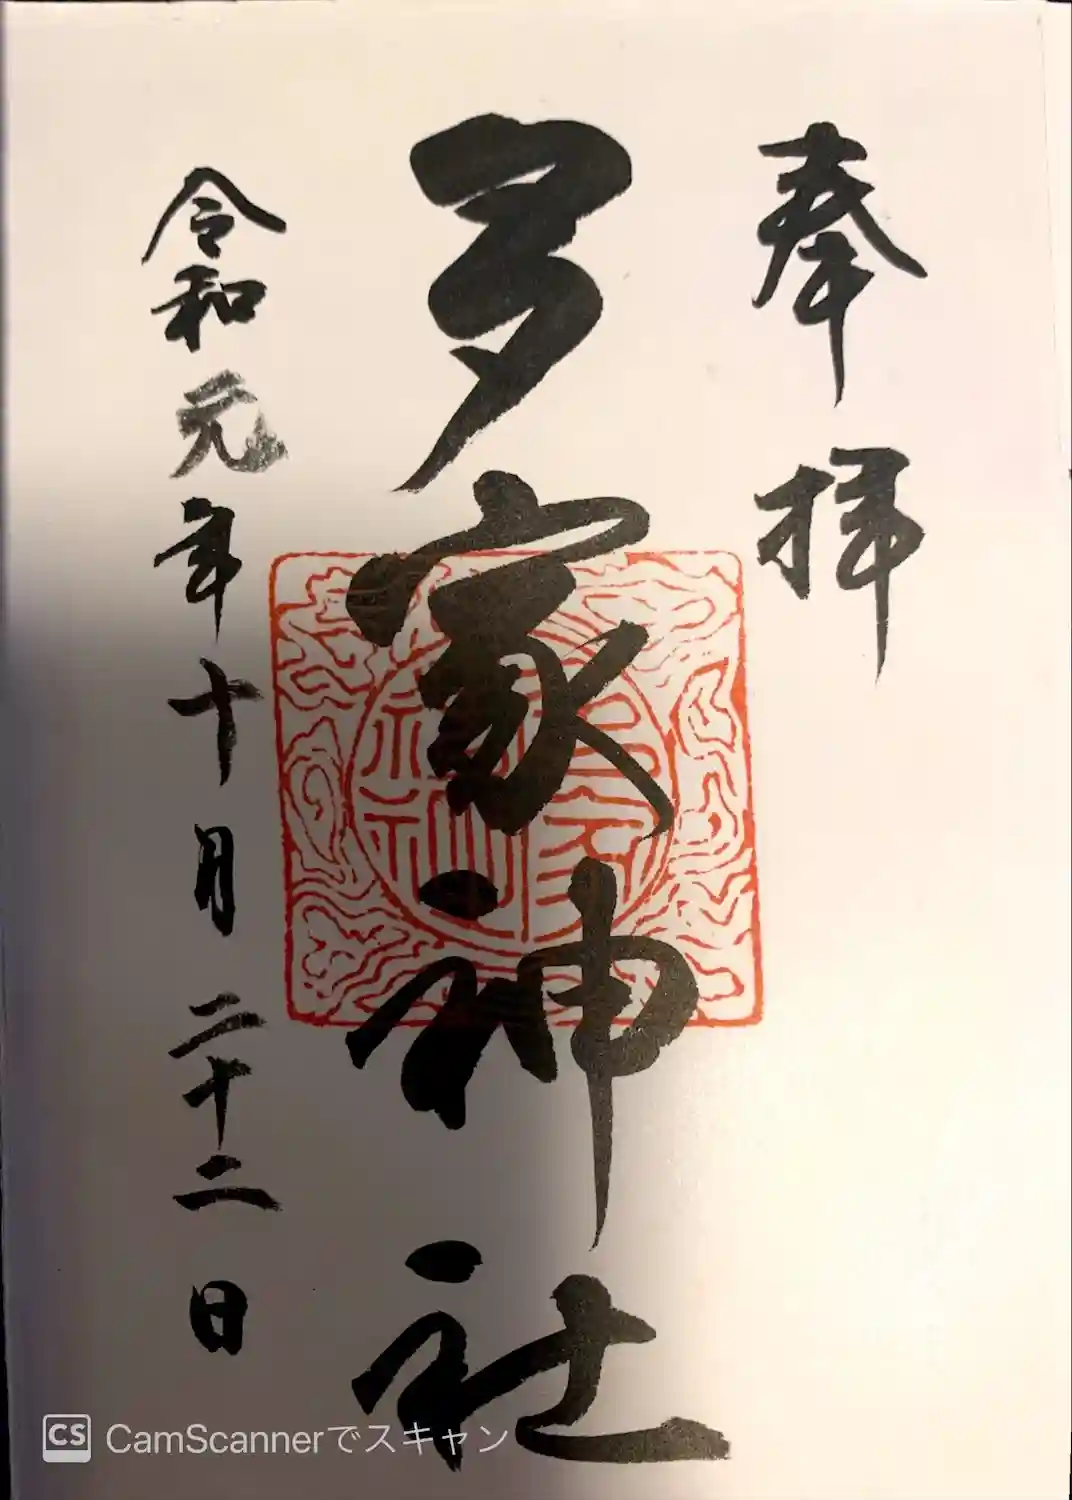 奉拝
多家神社
令和元年十月二十二日
CamScannerでスキャン